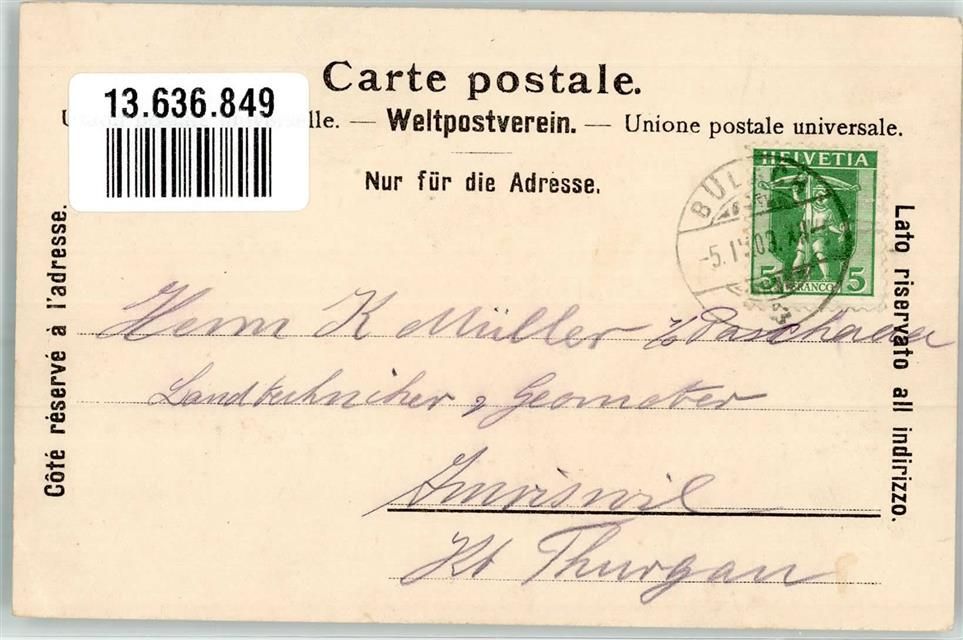 Carte postale.
13.636.849
lle. — Weltpostverein. — Unione postale universale.
Nur für die Adresse.
HELVETIA
5 FRANCO 5
BÜL
-5.IV.09.
Côté réservé à l'adresse.
Lato riservato all indirizzo.
Herrn K Müller
Landtechniker & Geometer
Amriswil
Kt Thurgau